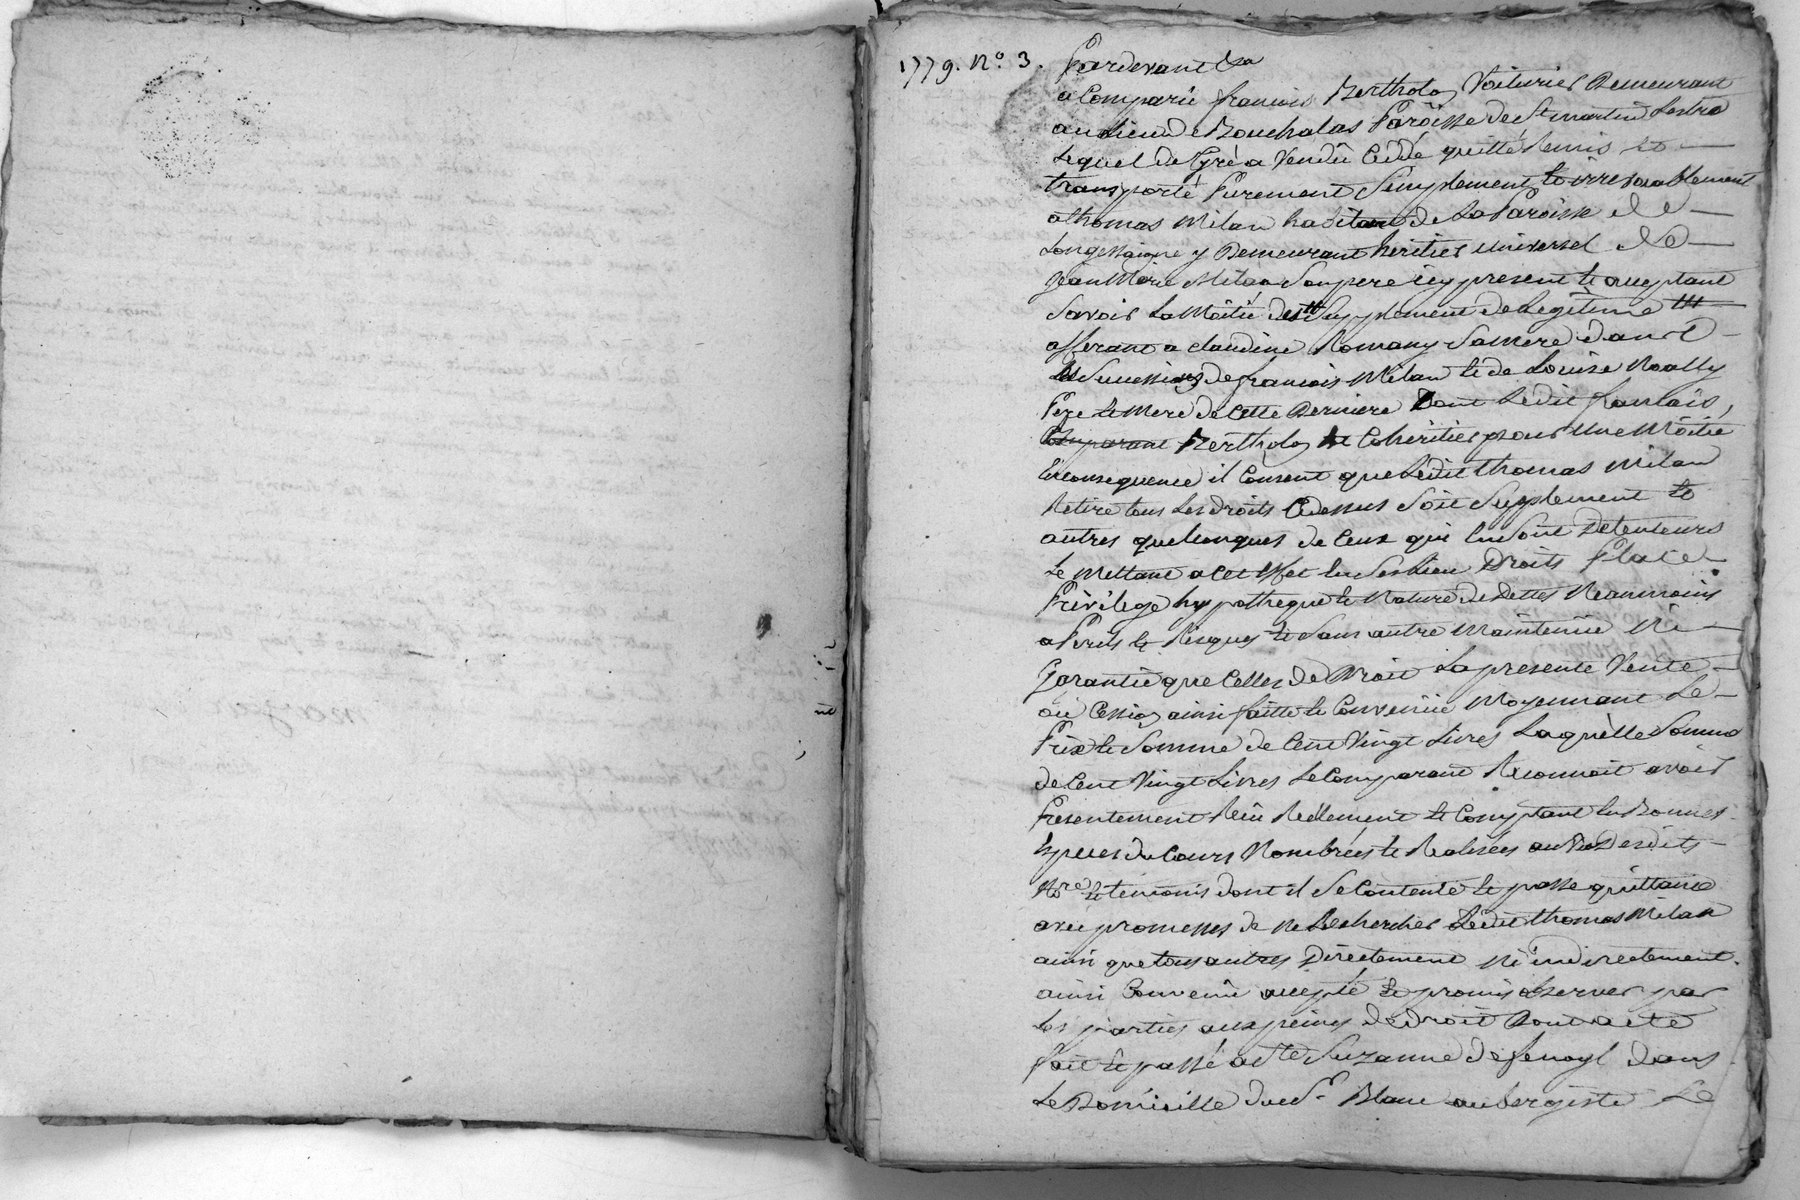 1779. N.º 3.
Pardevant &a
a Comparû francois Bertholon Voiturier Demeurant
au Lieu de Bouchalas Paroisse de St martin Lestra
Lequel de Gré a Vendû Cèdé quitté Remis et
transporté Purement Simplement et irrevocablement
a thomas Milan habitant de La Paroisse de
Longessaigne y Demeurant heritier universel de
Jean Marie Milan Son pere icy present et acceptant
Savoir La Moitié des Supplement de Legitime
afferant a claudine Romany Sa mere dans
les Successions de francois Milan et de Louise
Pere et Mere de Cette Derniere Dont Ledit francois,
Comparant Bertholon est Cohéritier pour Une Moitié
En consequence il Consent que Ledit thomas Milan
Retire tous Les droits Cidessus Soit Supplement et
autres quelconques de Ceux qui En Sont Détenteurs
Le Mettant a Cet Effet En Ses Lieu Droits Place
Privilege hypotheque et Nature de Dettes Neanmoins
a Perils et Risques et Sans autre Maintenüe Ni
Garantie que Celles de Droit La presente Vente
ou Cession ainsi faitte et Convenüe Moyennant Le
Prix et Somme de Cent Vingt Livres Laquelle Somme
de Cent Vingt Livres Le Comparant Reconnoit avoir
Presentement Reçû Réellement et Comptant En Bonnes
Especes du Cours Nombrées et Realisées au Vû Desdits
Nre et temoins dont il Se Contente et passe quittance
avec promesses de Ne Rechercher Ledit thomas Milan
ainsi que tous autres Directement Ni indirectement.
ainsi Convenü accepté et promis observer par
Les parties aux peines de droit Dont acte
fait et passé a Ste Suzanne de fenoyl dans
Le Domicille du Sr Blanc aubergiste Le